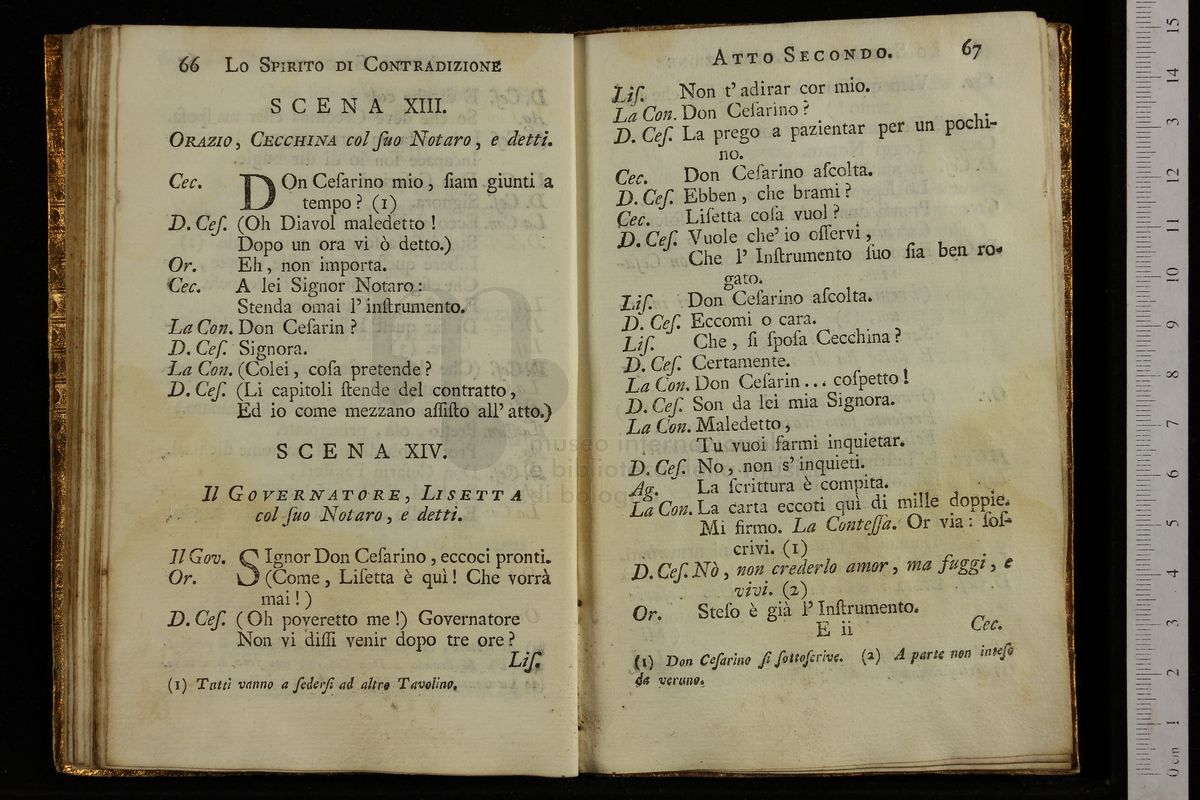 66 Lo Spirito di Contradizione
SCENA XIII.
Orazio, Cecchina col ſuo Notaro, e detti.
Cec. DOn Ceſarino mio, ſiam giunti a
tempo? (1)
D. Ceſ. (Oh Diavol maledetto!
Dopo un ora vi ò detto.)
Or. Eh, non importa.
Cec. A lei Signor Notaro:
Stenda omai l'inſtrumento.
La Con. Don Ceſarin?
D. Ceſ. Signora.
La Con. (Colei, coſa pretende?
D. Ceſ. (Li capitoli ſtende del contratto,
Ed io come mezzano aſſiſto all'atto.)
SCENA XIV.
Il Governatore, Lisetta
col ſuo Notaro, e detti.
Il Gov. SIgnor Don Ceſarino, eccoci pronti.
Or. (Come, Liſetta è quì! Che vorrà
mai!)
D. Ceſ. (Oh poveretto me!) Governatore
Non vi diſſi venir dopo tre ore?
Liſ.
(1) Tutti vanno a ſederſi ad altro Tavolino.
Atto Secondo. 67
Liſ. Non t'adirar cor mio.
La Con. Don Ceſarino?
D. Ceſ. La prego a pazientar per un pochi-
no.
Cec. Don Ceſarino aſcolta.
D. Ceſ. Ebben, che brami?
Cec. Liſetta coſa vuol?
D. Ceſ. Vuole che' io oſſervi,
Che l' Inſtrumento ſuo ſia ben ro-
gato.
Liſ. Don Ceſarino aſcolta.
D. Ceſ. Eccomi o cara.
Liſ. Che, ſi ſpoſa Cecchina?
D. Ceſ. Certamente.
La Con. Don Ceſarin... coſpetto!
D. Ceſ. Son da lei mia Signora.
La Con. Maledetto,
Tu vuoi farmi inquietar.
D. Ceſ. No, non s'inquieti.
Ag. La ſcrittura è compita.
La Con. La carta eccoti quì di mille doppie.
Mi firmo. La Conteſſa. Or via: ſoſ-
crivi. (1)
D. Ceſ. Nò, non crederlo amor, ma fuggi, e
vivi. (2)
Or. Steſo è già l'Inſtrumento.
E ii Cec.
(1) Don Ceſarino ſi ſottoſcrive. (2) A parte non inteſo
da veruno.